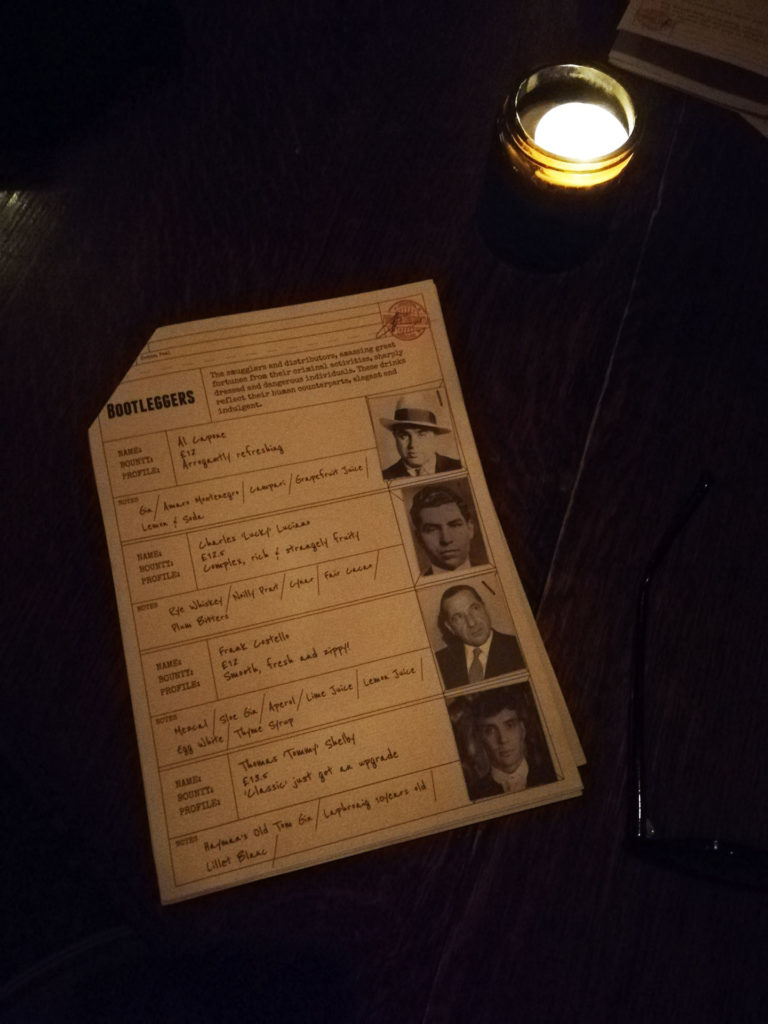 BOOTLEGGERS
The smugglers and distributors, amassing great
fortunes from their criminal activities, sharply
dressed and dangerous individuals. These drinks
reflect their human counterparts, elegant and
indulgent.
NAME: Al Capone
BOUNTY: £12
PROFILE: Arrogantly refreshing
NOTES
Gin / Amaro Montenegro / Campari / Grapefruit Juice /
Lemon & Soda
NAME: Charles 'Lucky' Luciano
BOUNTY: £12.5
PROFILE: Complex, rich & strangely fruity
NOTES
Rye Whiskey / Noilly Prat / Cynar / Fair Cacao /
Plum Bitters
NAME: Frank Costello
BOUNTY: £12
PROFILE: Smooth, fresh and zippy!
NOTES
Mezcal / Sloe Gin / Aperol / Lime Juice / Lemon Juice /
Egg White / Thyme Syrup
NAME: Thomas 'Tommy' Shelby
BOUNTY: £13.5
PROFILE: 'Classic' just got an upgrade
NOTES
Hayman's Old Tom Gin / Laphroaig 10years old /
Lillet Blanc /